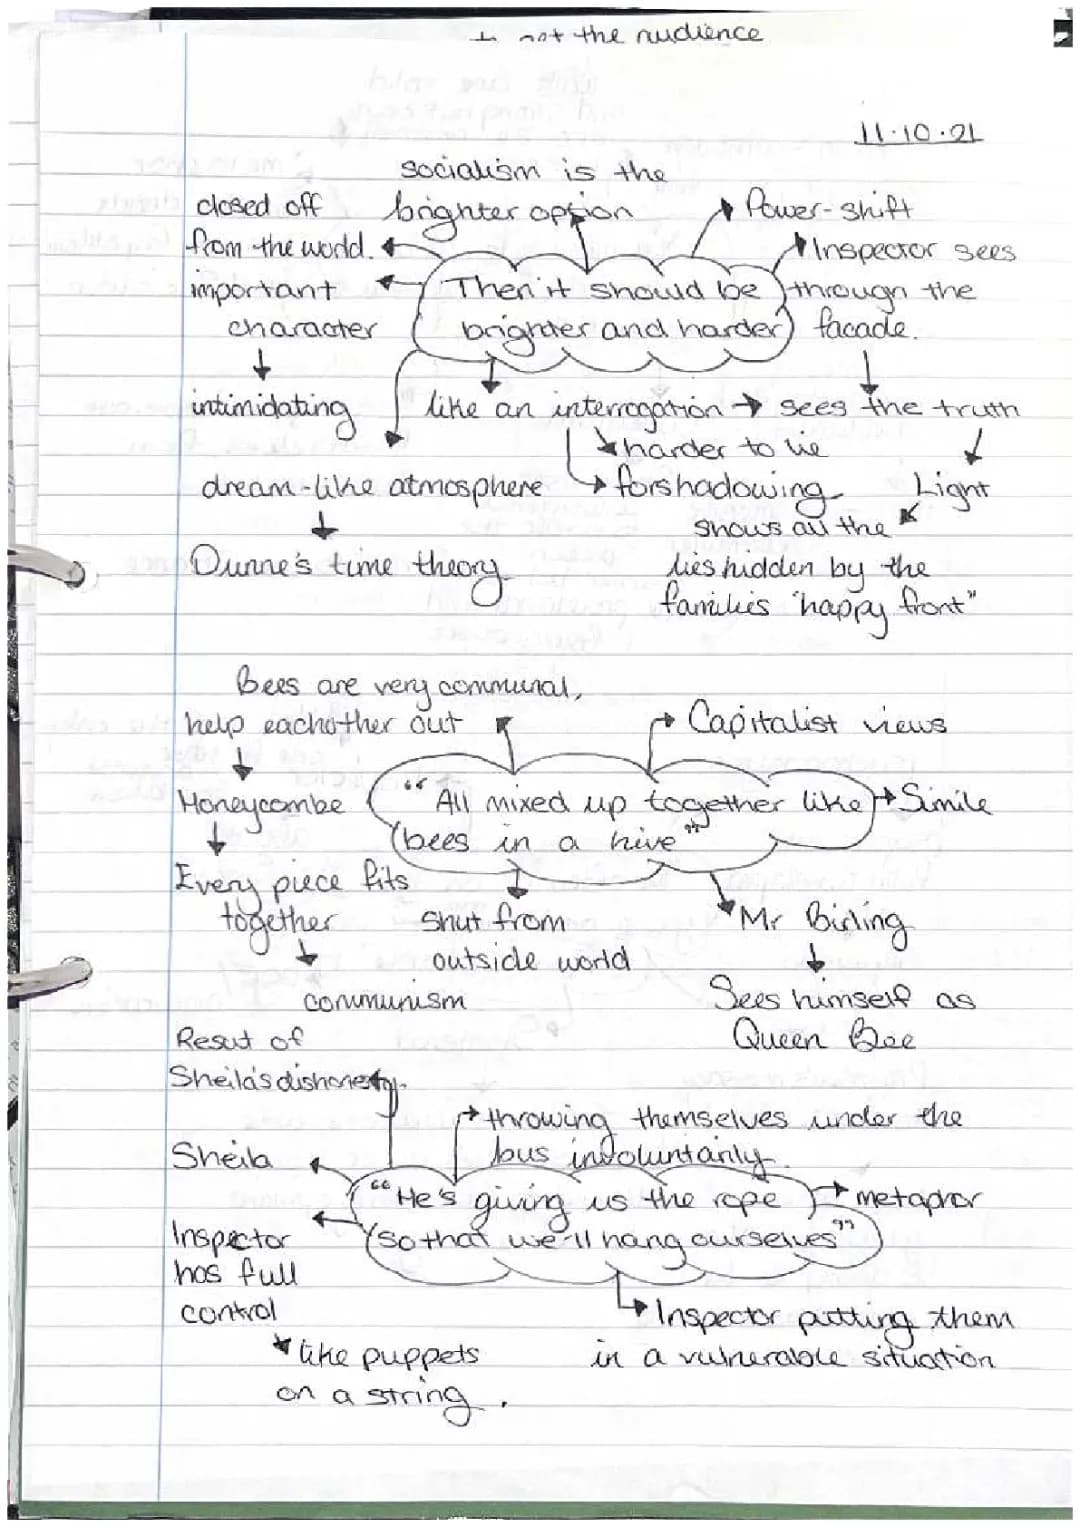 not the audience
11.10.21
socialism is the
brighter option
closed off
from the world.
important
character
intimidating
Power-shift
Inspector sees
through the
facade.
Then it should be
brighter and harder
like an interrogation → sees the truth
harder to lie
forshadowing
Light
shows all the
lies hidden by the
families "happy front"
dream-like atmosphere
Dunne's time theory
Bees are very communal,
help eachother out
Honeycombe
Every piece fits
together
communism
Capitalist views
"All mixed up together like
bees in a hive"
Simile
shut from
outside world
Mr Birling
Sees himself as
Queen Bee
Resut of
Sheila's dishonesty.
throwing themselves under the
bus involuntarily.
Sheila
"He's giving us the rope
so that we'll hang ourselves"
metaphor
Inspector
has full
control
like puppets
on a string.
Inspector putting them
in a vulnerable situation